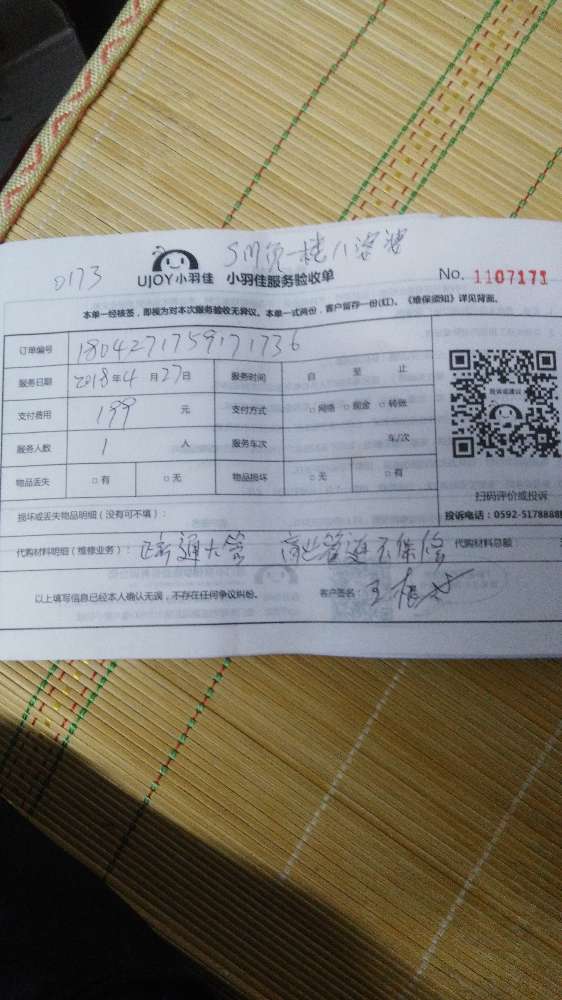 0173
SM负一楼八婆婆
UJOY小羽佳 小羽佳服务验收单 No. 1107171
本单一经核签，即视为对本次服务验收无异议。本单一式两份，客户留存一份(红)。《维保须知》详见背面。
订单编号 1804271759171736
服务日期 2018年4月27日 服务时间 自 至 止
支付费用 199 元 支付方式 □网络 □现金 □转账
服务人数 1 人 服务车次 车/次
物品丢失 □有 □无 物品损坏 □无 □有
投诉或建议
扫码评价或投诉
投诉电话：0592-5178888
损坏或丢失物品明细（没有可不填）：
代购材料明细（维修业务）： 疏通大管 商业管道不保修 代购材料总额
以上填写信息已经本人确认无误，不存在任何争议纠纷。 客户签名：王